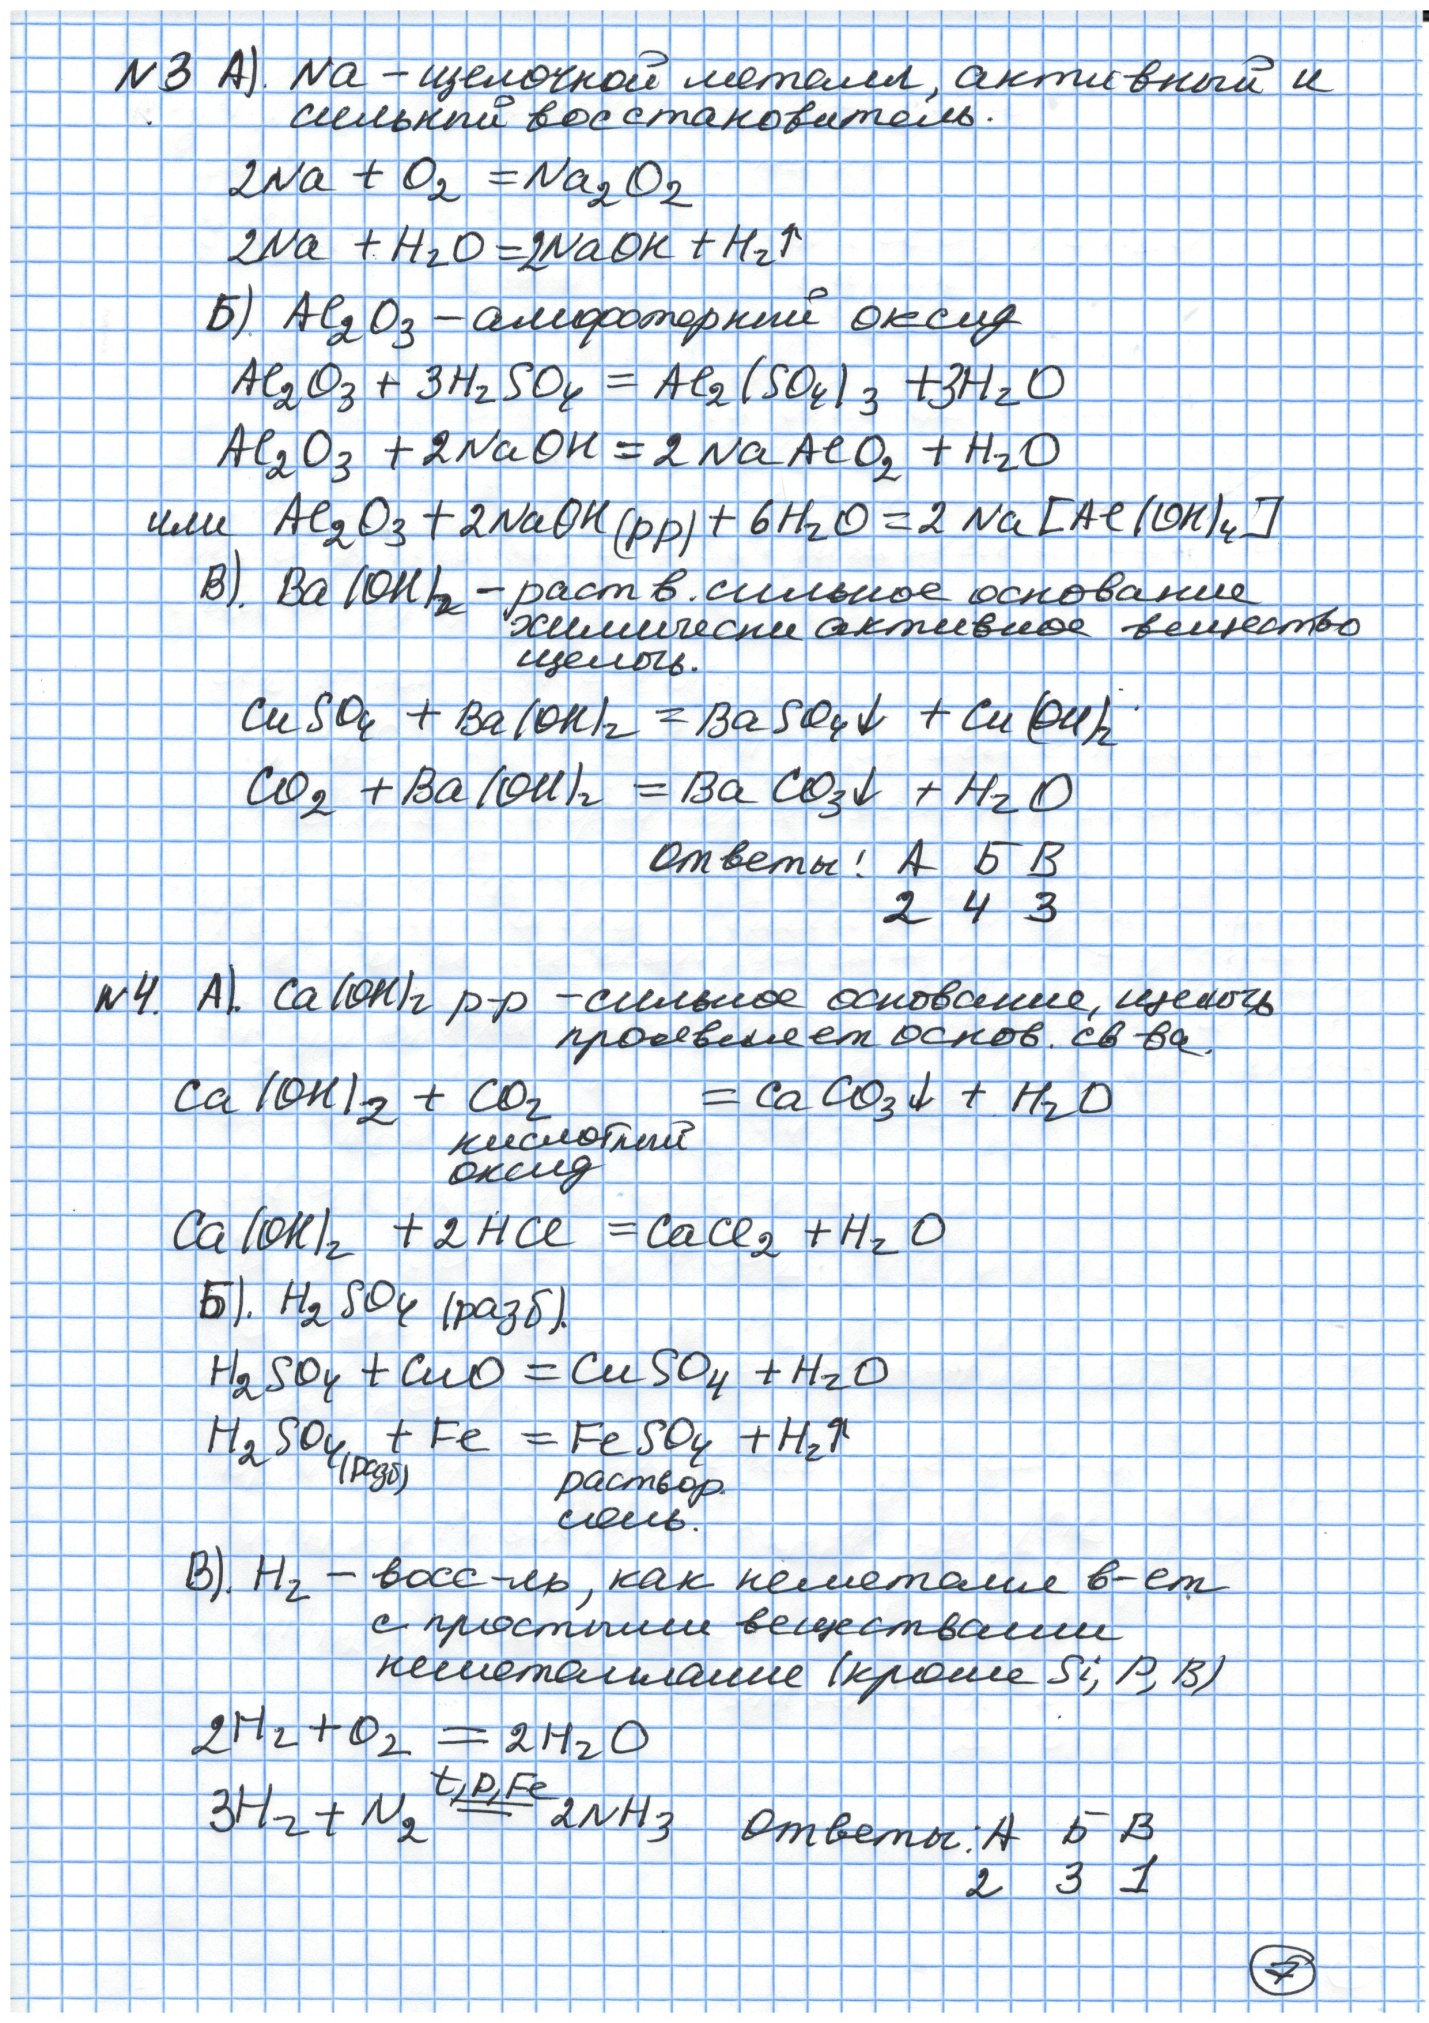 N3 А). Na – щелочной металл, активный и
сильный восстановитель.
2Na + O₂ = Na₂O₂
2Na + H₂O = 2NaOH + H₂↑
Б). Al₂O₃ – амфотерный оксид
Al₂O₃ + 3H₂SO₄ = Al₂(SO₄)₃ + 3H₂O
Al₂O₃ + 2NaOH = 2NaAlO₂ + H₂O
или Al₂O₃ + 2NaOH(рр) + 6H₂O = 2Na[Al(OH)₄]
В). Ba(OH)₂ – раств. сильное основание
химически активное вещество
щелочь.
CuSO₄ + Ba(OH)₂ = BaSO₄↓ + Cu(OH)₂
CO₂ + Ba(OH)₂ = BaCO₃↓ + H₂O
Ответы: А Б В
2 4 3
N4. А). Ca(OH)₂ р-р – сильное основание, щелочь
проявляет основ. св-ва.
Ca(OH)₂ + CO₂ = CaCO₃↓ + H₂O
кислотный
оксид
Ca(OH)₂ + 2HCl = CaCl₂ + H₂O
Б). H₂SO₄ (разб).
H₂SO₄ + CuO = CuSO₄ + H₂O
H₂SO₄(разб) + Fe = FeSO₄ + H₂↑
раствор.
соль.
В). H₂ – восс-ль, как неметалл в-ет
с простыми веществами
неметаллами (кроме Si, P, B)
2H₂ + O₂ = 2H₂O
t, p, Fe
3H₂ + N₂ = 2NH₃ Ответы: А Б В
2 3 1
7